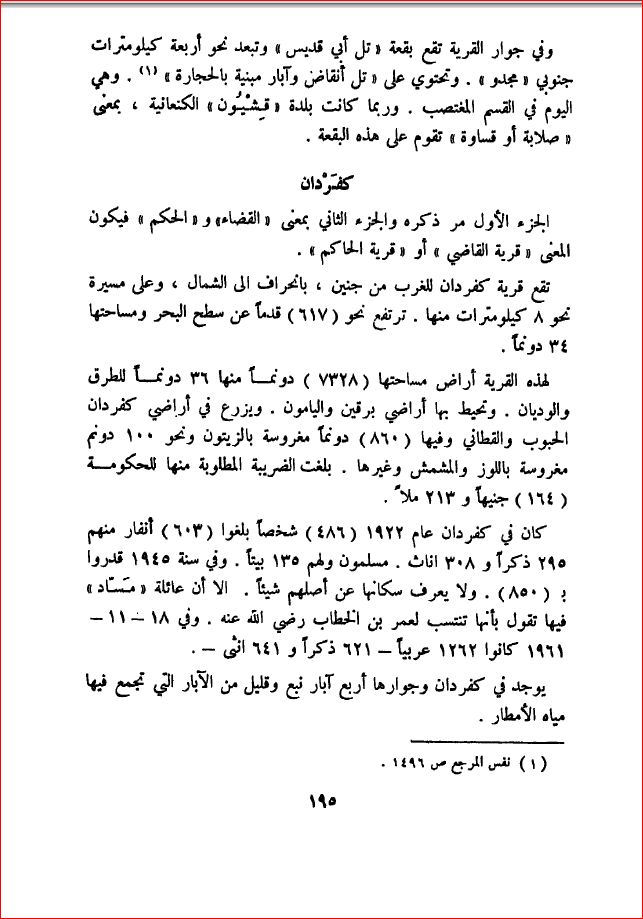 وفي جوار القرية تقع بقعة « تل أبي قديس » وتبعد نحو أربعة كيلومترات
جنوبي « مجدو » . وتحتوي على « تل أنقاض وآبار مبنية بالحجارة » (١) . وهي
اليوم في القسم المغتصب . وربما كانت بلدة « قِشْيُون » الكنعانية ، بمعنى
« صلابة أو قساوة » تقوم على هذه البقعة .
كفردان
الجزء الأول مر ذكره والجزء الثاني بمعنى « القضاء » و « الحكم » فيكون
المعنى « قرية القاضي » أو « قرية الحاكم » .
تقع قرية كفردان للغرب من جنين ، بانحراف الى الشمال ، وعلى مسيرة
نحو ٨ كيلومترات منها . ترتفع نحو ( ٦١٧ ) قدماً عن سطح البحر ومساحتها
٣٤ دونماً .
لهذه القرية أراض مساحتها ( ٧٣٢٨ ) دونمـاً منها ٣٦ دونمـاً للطرق
والوديان . وتحيط بها أراضي برقين واليامون . ويزرع في أراضي كفردان
الحبوب والقطاني وفيها ( ٨٦٠ ) دونماً مغروسة بالزيتون ونحو ١٠٠ دونم
مغروسة باللوز والمشمش وغيرها . بلغت الضريبة المطلوبة منها للحكومـة
( ١٦٤ ) جنيهاً و ٢١٣ ملاً .
كان في كفردان عام ١٩٢٢ ( ٤٨٦ ) شخصاً بلغوا ( ٦٠٣ ) أنفار منهم
٢٩٥ ذكراً و ٣٠٨ اناث . مسلمون ولهم ١٣٥ بيتاً . وفي سنة ١٩٤٥ قدروا
بـ ( ٨٥٠ ) . ولا يعرف سكانها عن أصلهم شيئاً . الا أن عائلة « مَسّاد »
فيها تقول بأنها تنتسب لعمر بن الخطاب رضي الله عنه . وفي ١٨ – ١١ –
١٩٦١ كانوا ١٢٦٢ عربياً – ٦٢١ ذكراً و ٦٤١ انثى – .
يوجد في كفردان وجوارها أربع آبار نبع وقليل من الآبار التي تجمع فيها
مياه الأمطار .
( ١ ) نفس المرجع ص ١٤٩٦ .
١٩٥